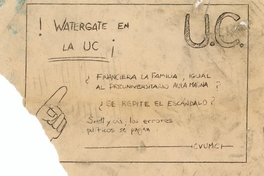 ! WATERGATE EN
LA UC ¡
U.C.
¿ FINANCIERA LA FAMILIA, IGUAL
AL PREUNIVERSITARIO AULA MAGNA ¡
¿ SE REPITE EL ESCÁNDALO?
los errores
políticos se pagan
CVUMC